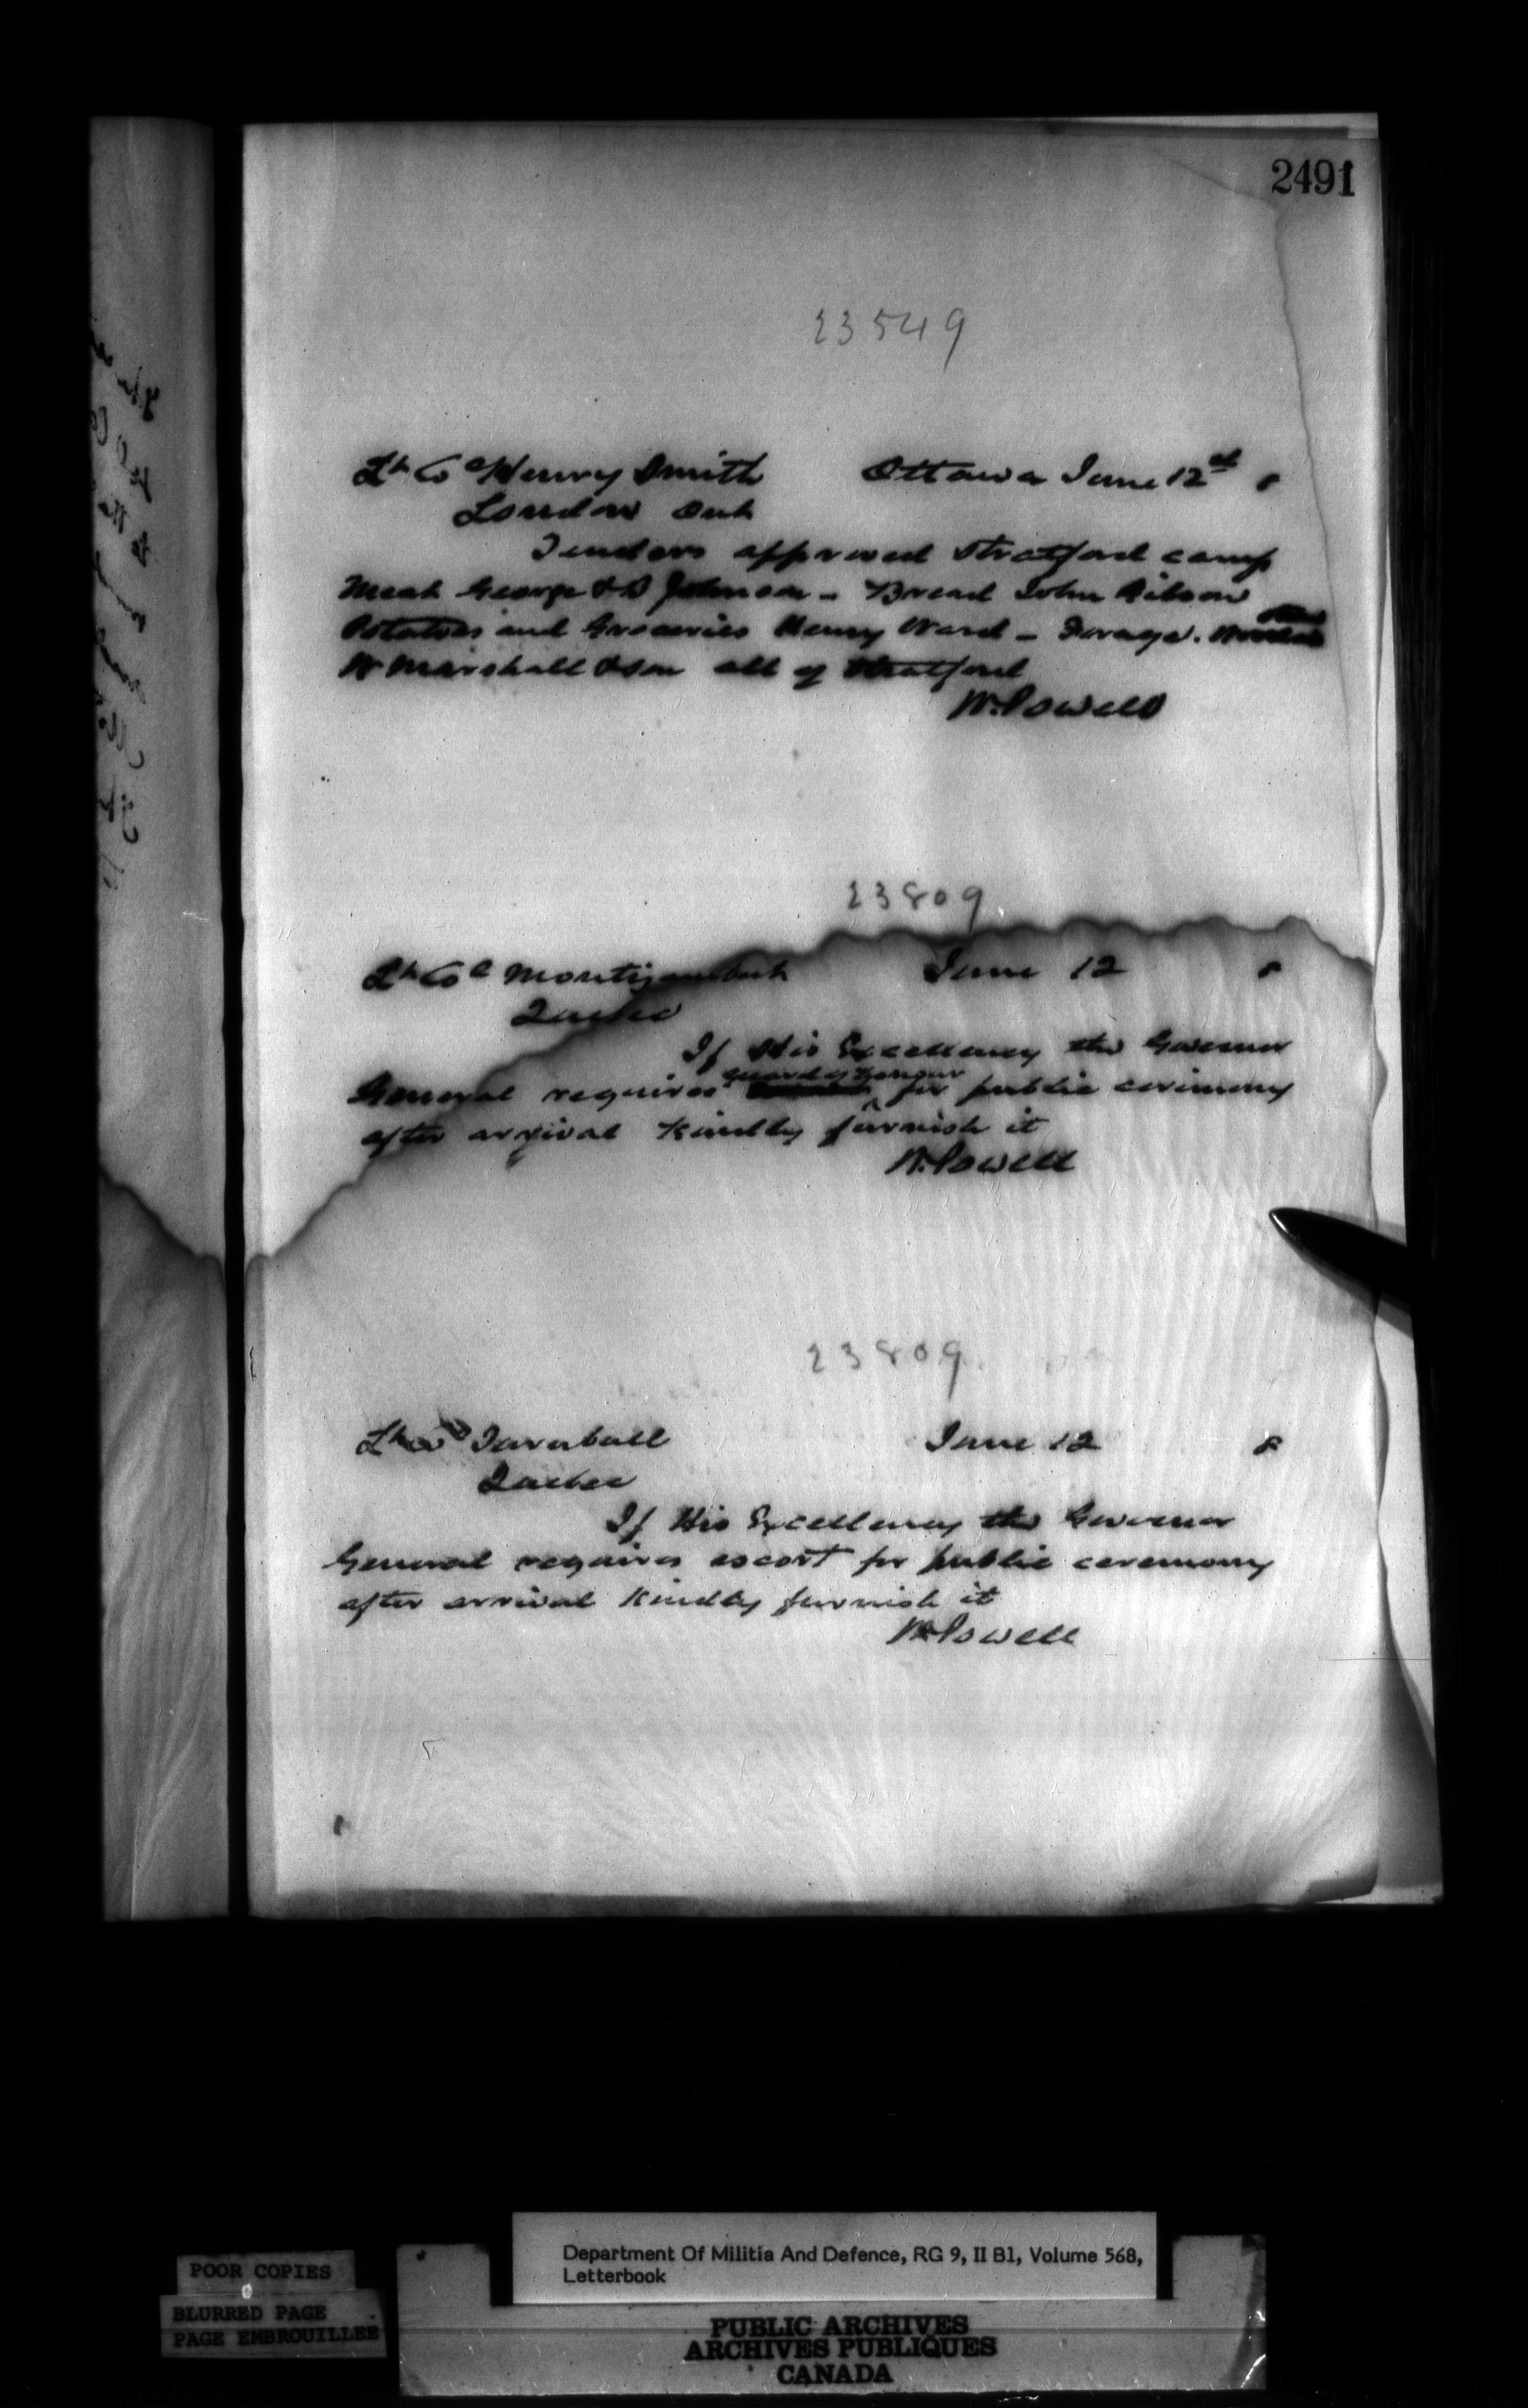 2491
23549
Lt Col Henry Smith Ottawa June 12th 8
London Ont
Tenders approved Stratford camp
Meat George & D Johnson - Bread John Gibson
Potatoes and Groceries Henry Ward - Forage.
W Marshall & Son all of Stratford
W. Powell
23809
Lt Col Montizambert June 12 8
Quebec
If His Excellency the Governor
guard of honour
General requires for public cerimony
after arrival kindly furnish it
W. Powell
23809
Lt Col Turnbull June 12 8
Quebec
If His Excellency the Governor
General requires escort for public ceremony
after arrival kindly furnish it
W Powell
Department Of Militia And Defence, RG 9, II B1, Volume 568,
Letterbook
POOR COPIES
BLURRED PAGE
PAGE EMBROUILLEE
PUBLIC ARCHIVES
ARCHIVES PUBLIQUES
CANADA